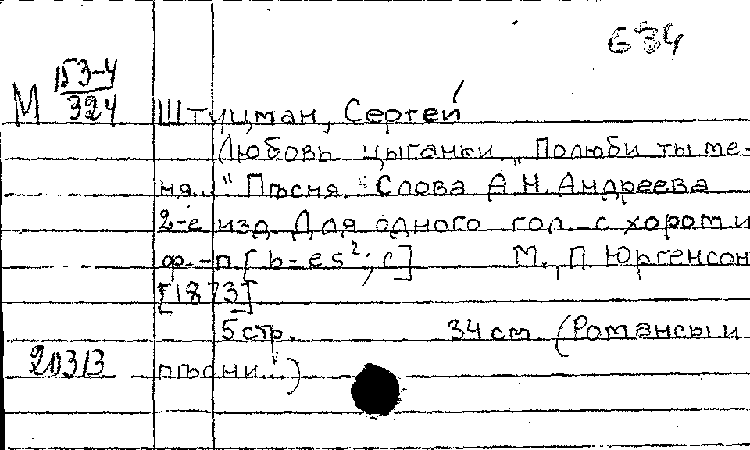 634
М 153-4/324
Штуцман, Сергей
Любовь цыганки „Полюби ты ме-
ня..." Пѣсня. Слова А.Н. Андреева
2-е изд. Для одного гол. с хором и
ф.-п. [b-es²; c] М., П. Юргенсон
[1873]
5 стр. 34 см (Романсы и
20313 пѣсни...)